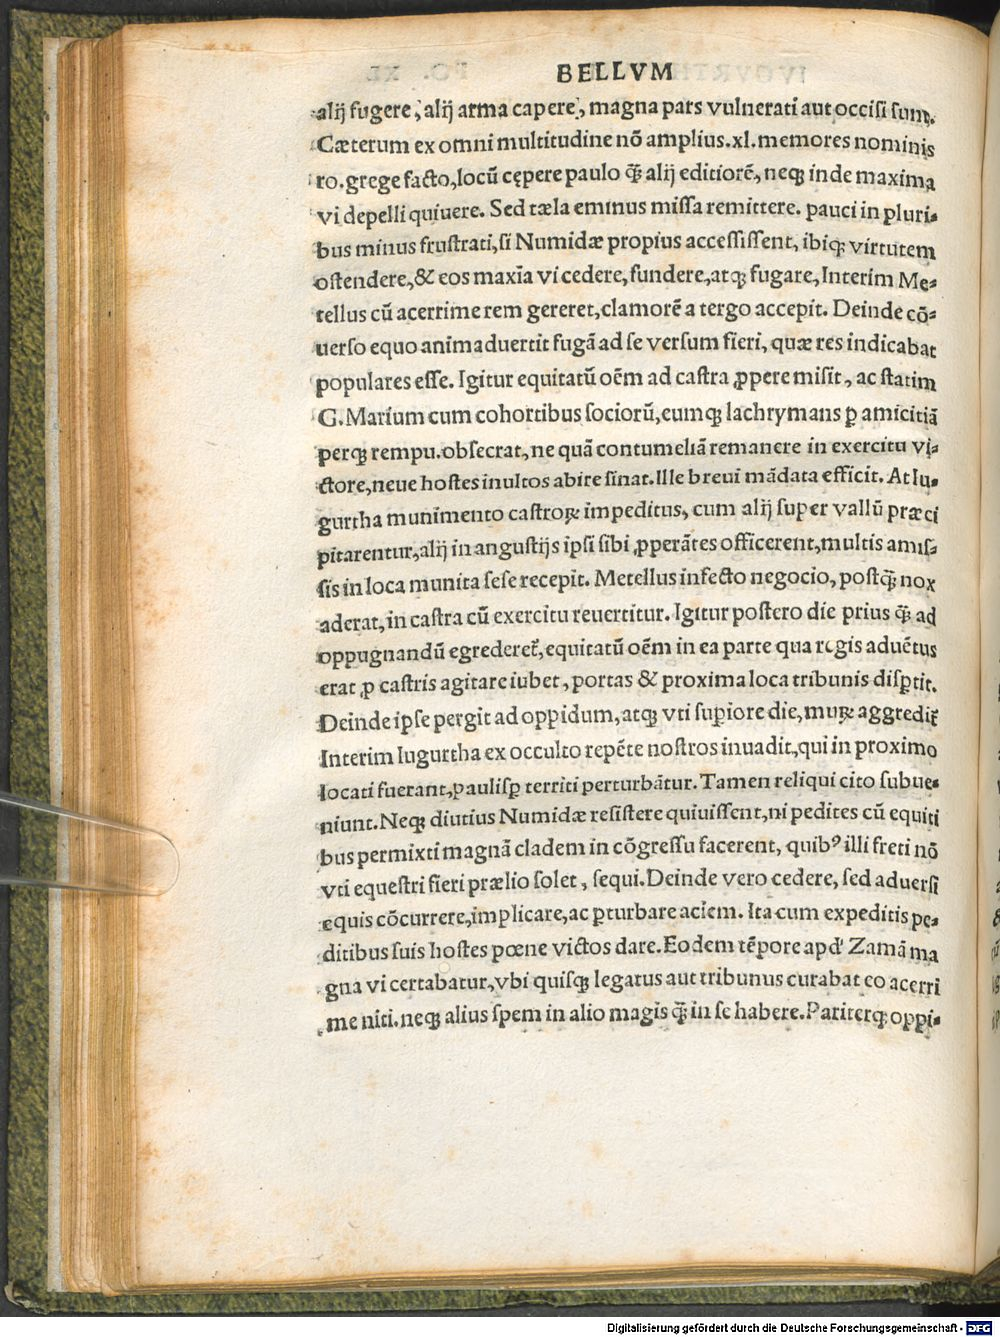 BELLVM
alij fugere, alij arma capere, magna pars vulnerati aut occisi sunt.
Cæterum ex omni multitudine nõ amplius.xl.memores nominis
ro.grege facto,locũ cępere paulo ꝙ̃ alij editiorẽ, neqꝫ inde maxima
vi depelli quiuere. Sed tæla eminus missa remittere. pauci in pluri-
bus minus frustrati,si Numidæ propius accessissent, ibiqꝫ virtutem
ostendere,& eos maxĩa vi cedere, fundere,atqꝫ fugare, Interim Me-
tellus cũ acerrime rem gereret,clamorẽ a tergo accepit. Deinde cõ-
uerso equo animaduertit fugã ad se versum fieri, quæ res indicabat
populares esse. Igitur equitatũ oẽm ad castra ꝓpere misit, ac statim
G.Marium cum cohortibus sociorũ,eumqꝫ lachrymans ꝑ amicitiã
perqꝫ rempu.obsecrat, ne quã contumeliã remanere in exercitu vi-
ctore,neue hostes inultos abire sinat.Ille breui mãdata efficit. At Iu-
gurtha munimento castroꝝ impeditus, cum alij super vallũ præci
pitarentur,alij in angustijs ipsi sibi ꝓperãtes officerent,multis amis-
sis in loca munita sese recepit. Metellus infecto negocio, postꝙ̃ nox
aderat,in castra cũ exercitu reuertitur. Igitur postero die prius ꝙ̃ ad
oppugnandũ egrederet̃,equitatũ oẽm in ea parte qua regis aduẽtus
erat ꝓ castris agitare iubet, portas & proxima loca tribunis disꝑtit.
Deinde ipse pergit ad oppidum, atqꝫ vti suꝑiore die, muꝝ aggredit̃
Interim Iugurtha ex occulto repẽte nostros inuadit,qui in proximo
locati fuerant,paulisꝑ territi perturbãtur. Tamen reliqui cito subue-
niunt.Neqꝫ diutius Numidæ resistere quiuissent,ni pedites cũ equiti
bus permixti magnã cladem in cõgressu facerent, quibꝰ illi freti nõ
vti equestri fieri prælio solet, sequi.Deinde vero cedere, sed aduersi
equis cõcurrere,implicare,ac ꝑturbare aciem. Ita cum expeditis pe-
ditibus suis hostes pœne victos dare. Eodem tẽpore apd' Zamã ma
gna vi certabatur,vbi quisqꝫ legatus aut tribunus curabat eo acerri
me niti.neqꝫ alius spem in alio magis ꝙ̃ in se habere. Pariterqꝫ oppi-
Digitalisierung gefördert durch die Deutsche Forschungsgemeinschaft - DFG